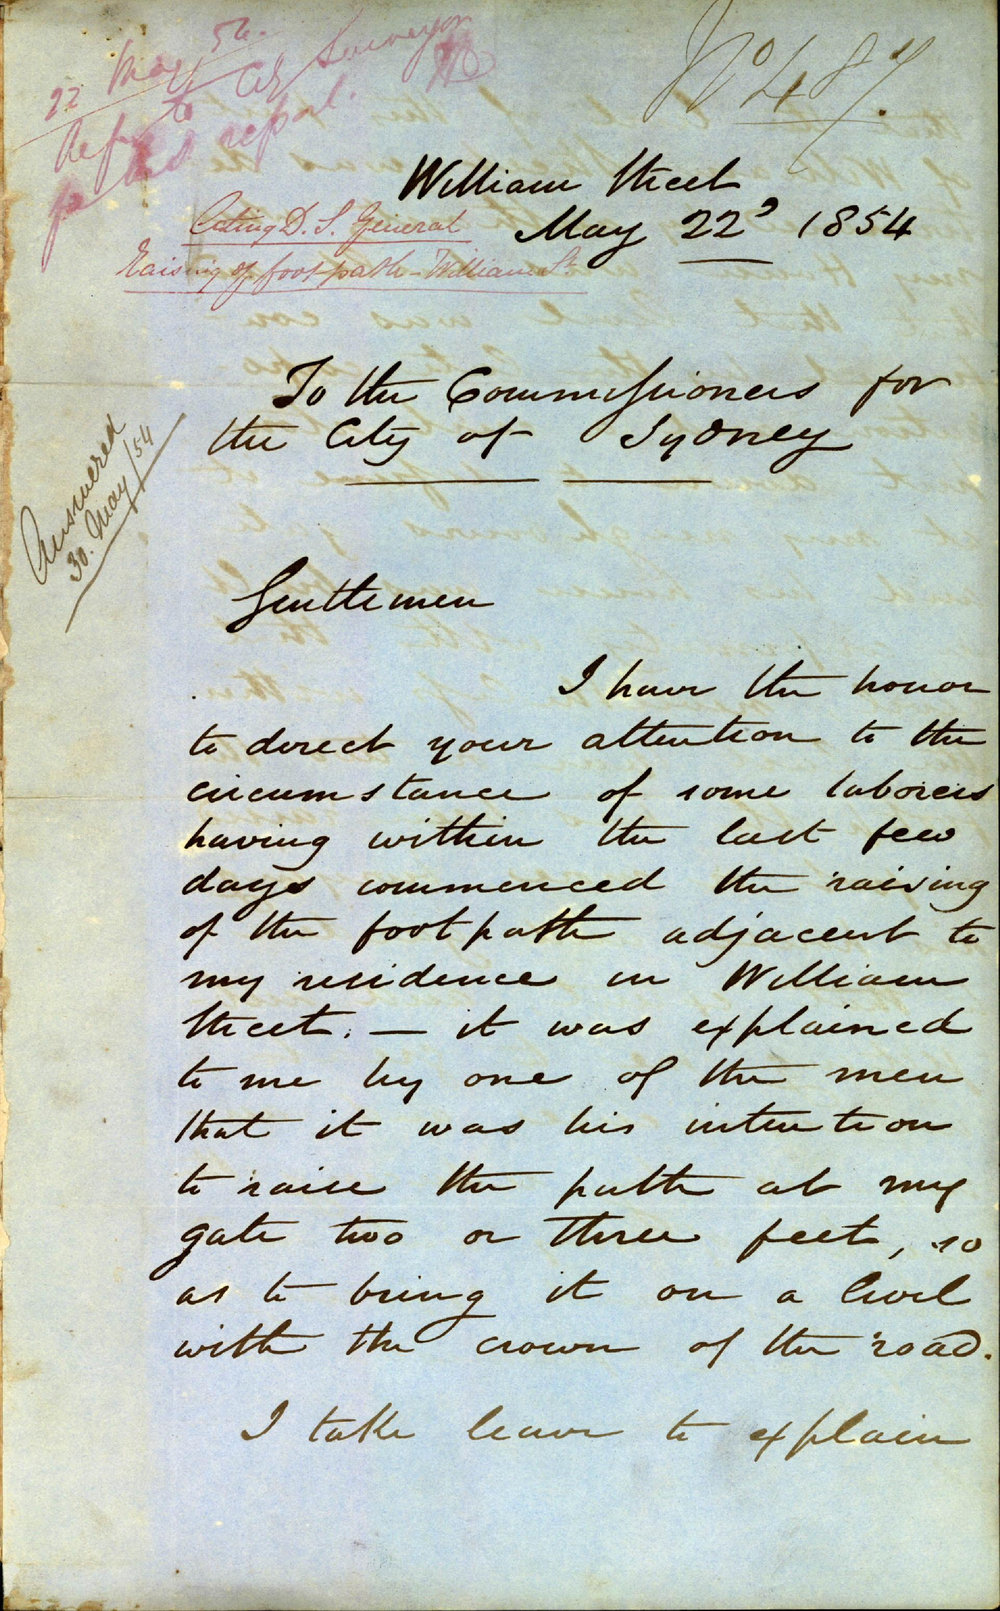 22 May 54.
Refer to City Surveyor
for his report.
No 487.
William Street
May 22d 1854
Acting D. S. General
Raising of footpath - William St.
To the Commissioners for
the City of Sydney
Answered
30. May /54
Gentlemen
I have the honor
to direct your attention to the
circumstance of some laborers
having within the last few
days commenced the raising
of the footpath adjacent to
my residence in William
Street. — it was explained
to me by one of the men
that it was his intention
to raise the path at my
gate two or three feet, so
as to bring it on a level
with the crown of the road.
I take leave to explain